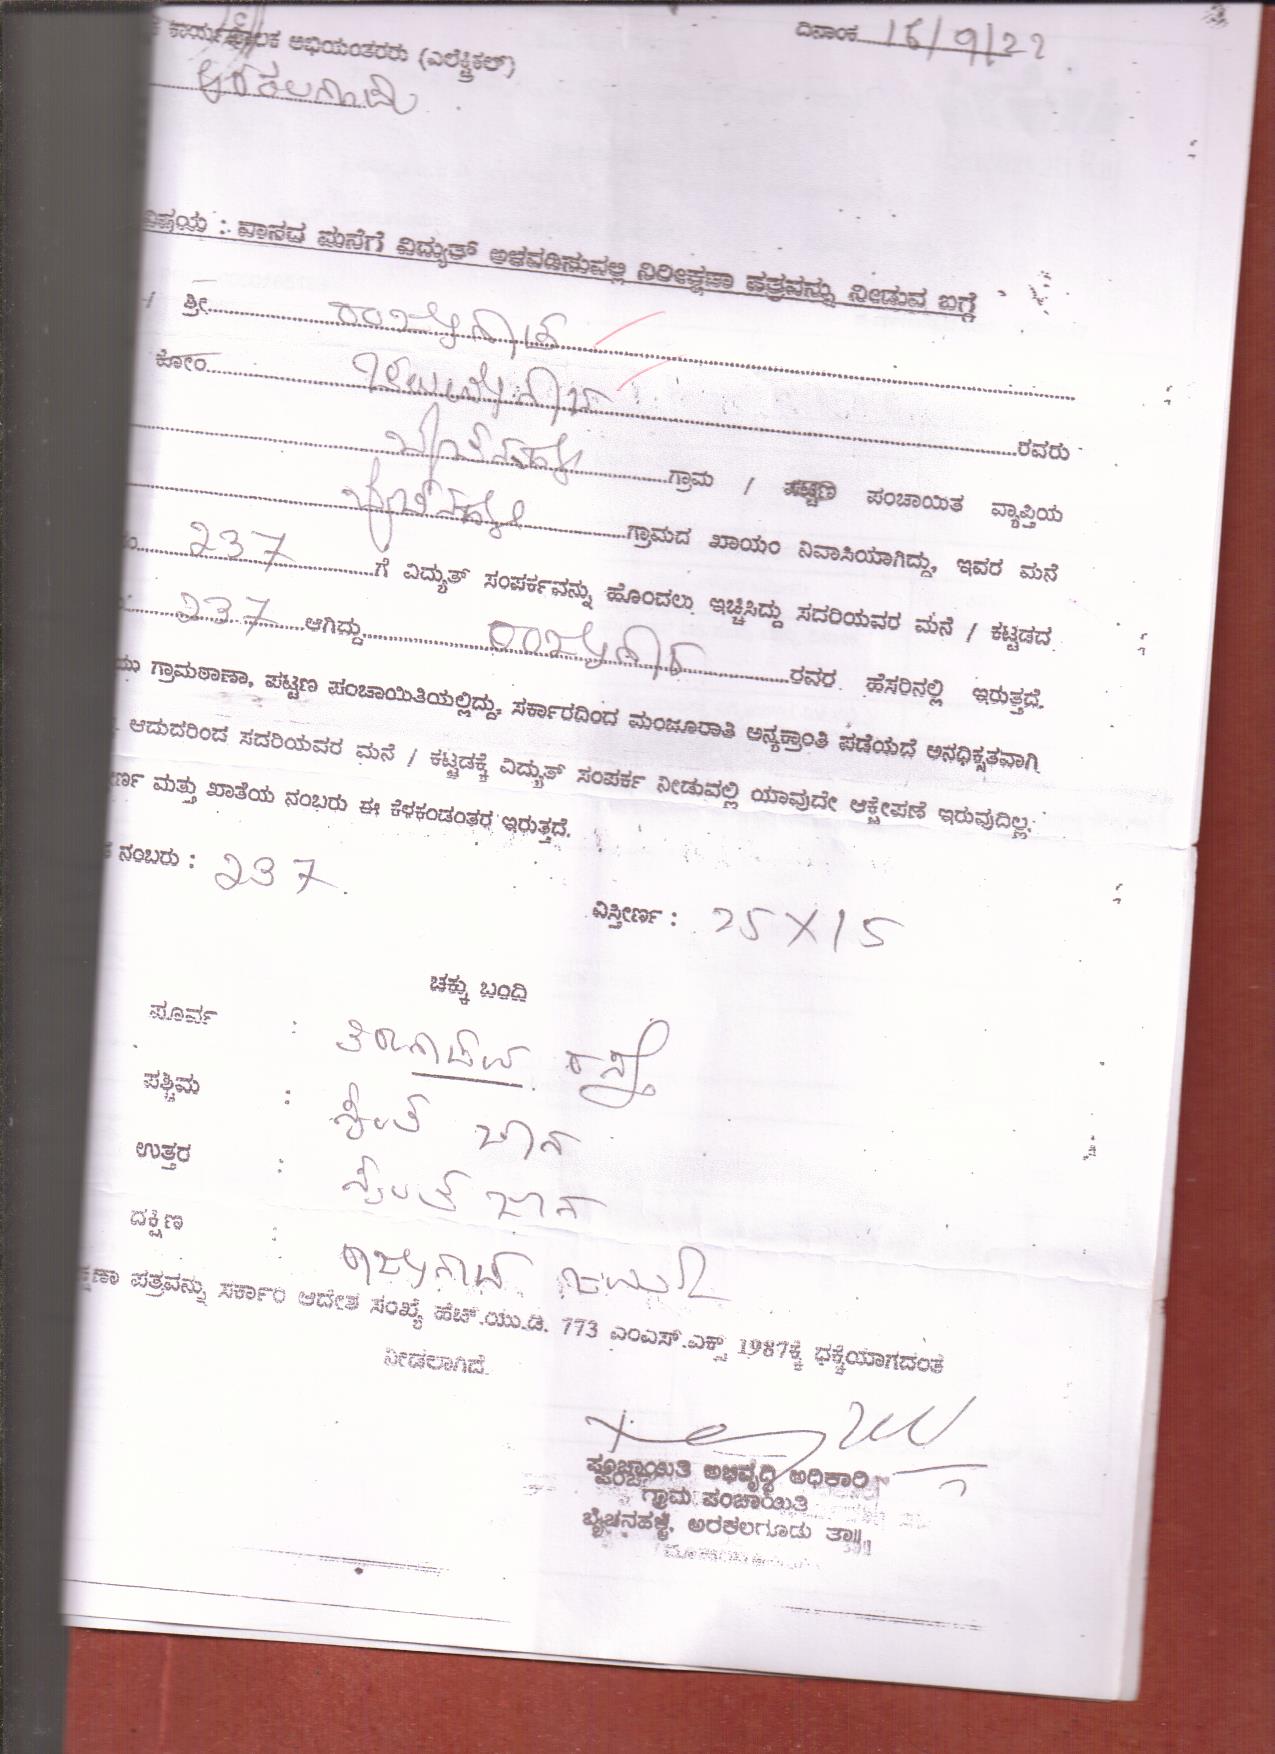 ದಿನಾಂಕ 16/9/22
ಕಾರ್ಯಪಾಲಕ ಅಭಿಯಂತರರು (ಎಲೆಕ್ಟ್ರಿಕಲ್)
ಅರಕಲಗೂಡು
ವಿಷಯ : ವಾಸದ ಮನೆಗೆ ವಿದ್ಯುತ್ ಅಳವಡಿಸುವಲ್ಲಿ ನಿರೀಕ್ಷಣಾ ಪತ್ರವನ್ನು ನೀಡುವ ಬಗ್ಗೆ
/ ಶ್ರೀ
ಕೋಂ
ರವರು
ಗ್ರಾಮ / ಪಟ್ಟಣ ಪಂಚಾಯಿತ ವ್ಯಾಪ್ತಿಯ
ಗ್ರಾಮದ ಖಾಯಂ ನಿವಾಸಿಯಾಗಿದ್ದು, ಇವರ ಮನೆ
237 ಗೆ ವಿದ್ಯುತ್ ಸಂಪರ್ಕವನ್ನು ಹೊಂದಲು ಇಚ್ಚಿಸಿದ್ದು ಸದರಿಯವರ ಮನೆ / ಕಟ್ಟಡದ
237 ಆಗಿದ್ದು, ರವರ ಹೆಸರಿನಲ್ಲಿ ಇರುತ್ತದೆ.
ಯು ಗ್ರಾಮಠಾಣಾ, ಪಟ್ಟಣ ಪಂಚಾಯಿತಿಯಲ್ಲಿದ್ದು, ಸರ್ಕಾರದಿಂದ ಮಂಜೂರಾತಿ ಅನ್ಯಕ್ರಾಂತಿ ಪಡೆಯದೆ ಅನಧಿಕೃತವಾಗಿ
ಆದುದರಿಂದ ಸದರಿಯವರ ಮನೆ / ಕಟ್ಟಡಕ್ಕೆ ವಿದ್ಯುತ್ ಸಂಪರ್ಕ ನೀಡುವಲ್ಲಿ ಯಾವುದೇ ಆಕ್ಷೇಪಣೆ ಇರುವುದಿಲ್ಲ.
ರ್ಣ ಮತ್ತು ಖಾತೆಯ ನಂಬರು ಈ ಕೆಳಕಂಡಂತರ ಇರುತ್ತದೆ.
ನಂಬರು : 237
ವಿಸ್ತೀರ್ಣ : 25X15
ಚಕ್ಕು ಬಂದಿ
ಪೂರ್ವ : ರಸ್ತೆ
ಪಶ್ಚಿಮ : ಸ್ವಂತ ಜಾಗ
ಉತ್ತರ : ಸ್ವಂತ ಜಾಗ
ದಕ್ಷಿಣ :
ಕ್ಷಣಾ ಪತ್ರವನ್ನು ಸರ್ಕಾರಿ ಆದೇಶ ಸಂಖ್ಯೆ ಹೆಚ್.ಯು.ಡಿ. 773 ಎಂಎಸ್.ಎಕ್ಸ್ 1987ಕ್ಕೆ ಧಕ್ಕೆಯಾಗದಂತೆ
ನೀಡಲಾಗಿದೆ.
ಪಂಚಾಯಿತಿ ಅಭಿವೃದ್ಧಿ ಅಧಿಕಾರಿ
ಗ್ರಾಮ ಪಂಚಾಯಿತಿ
ಬೈಚನಹಳ್ಳಿ, ಅರಕಲಗೂಡು ತಾ||